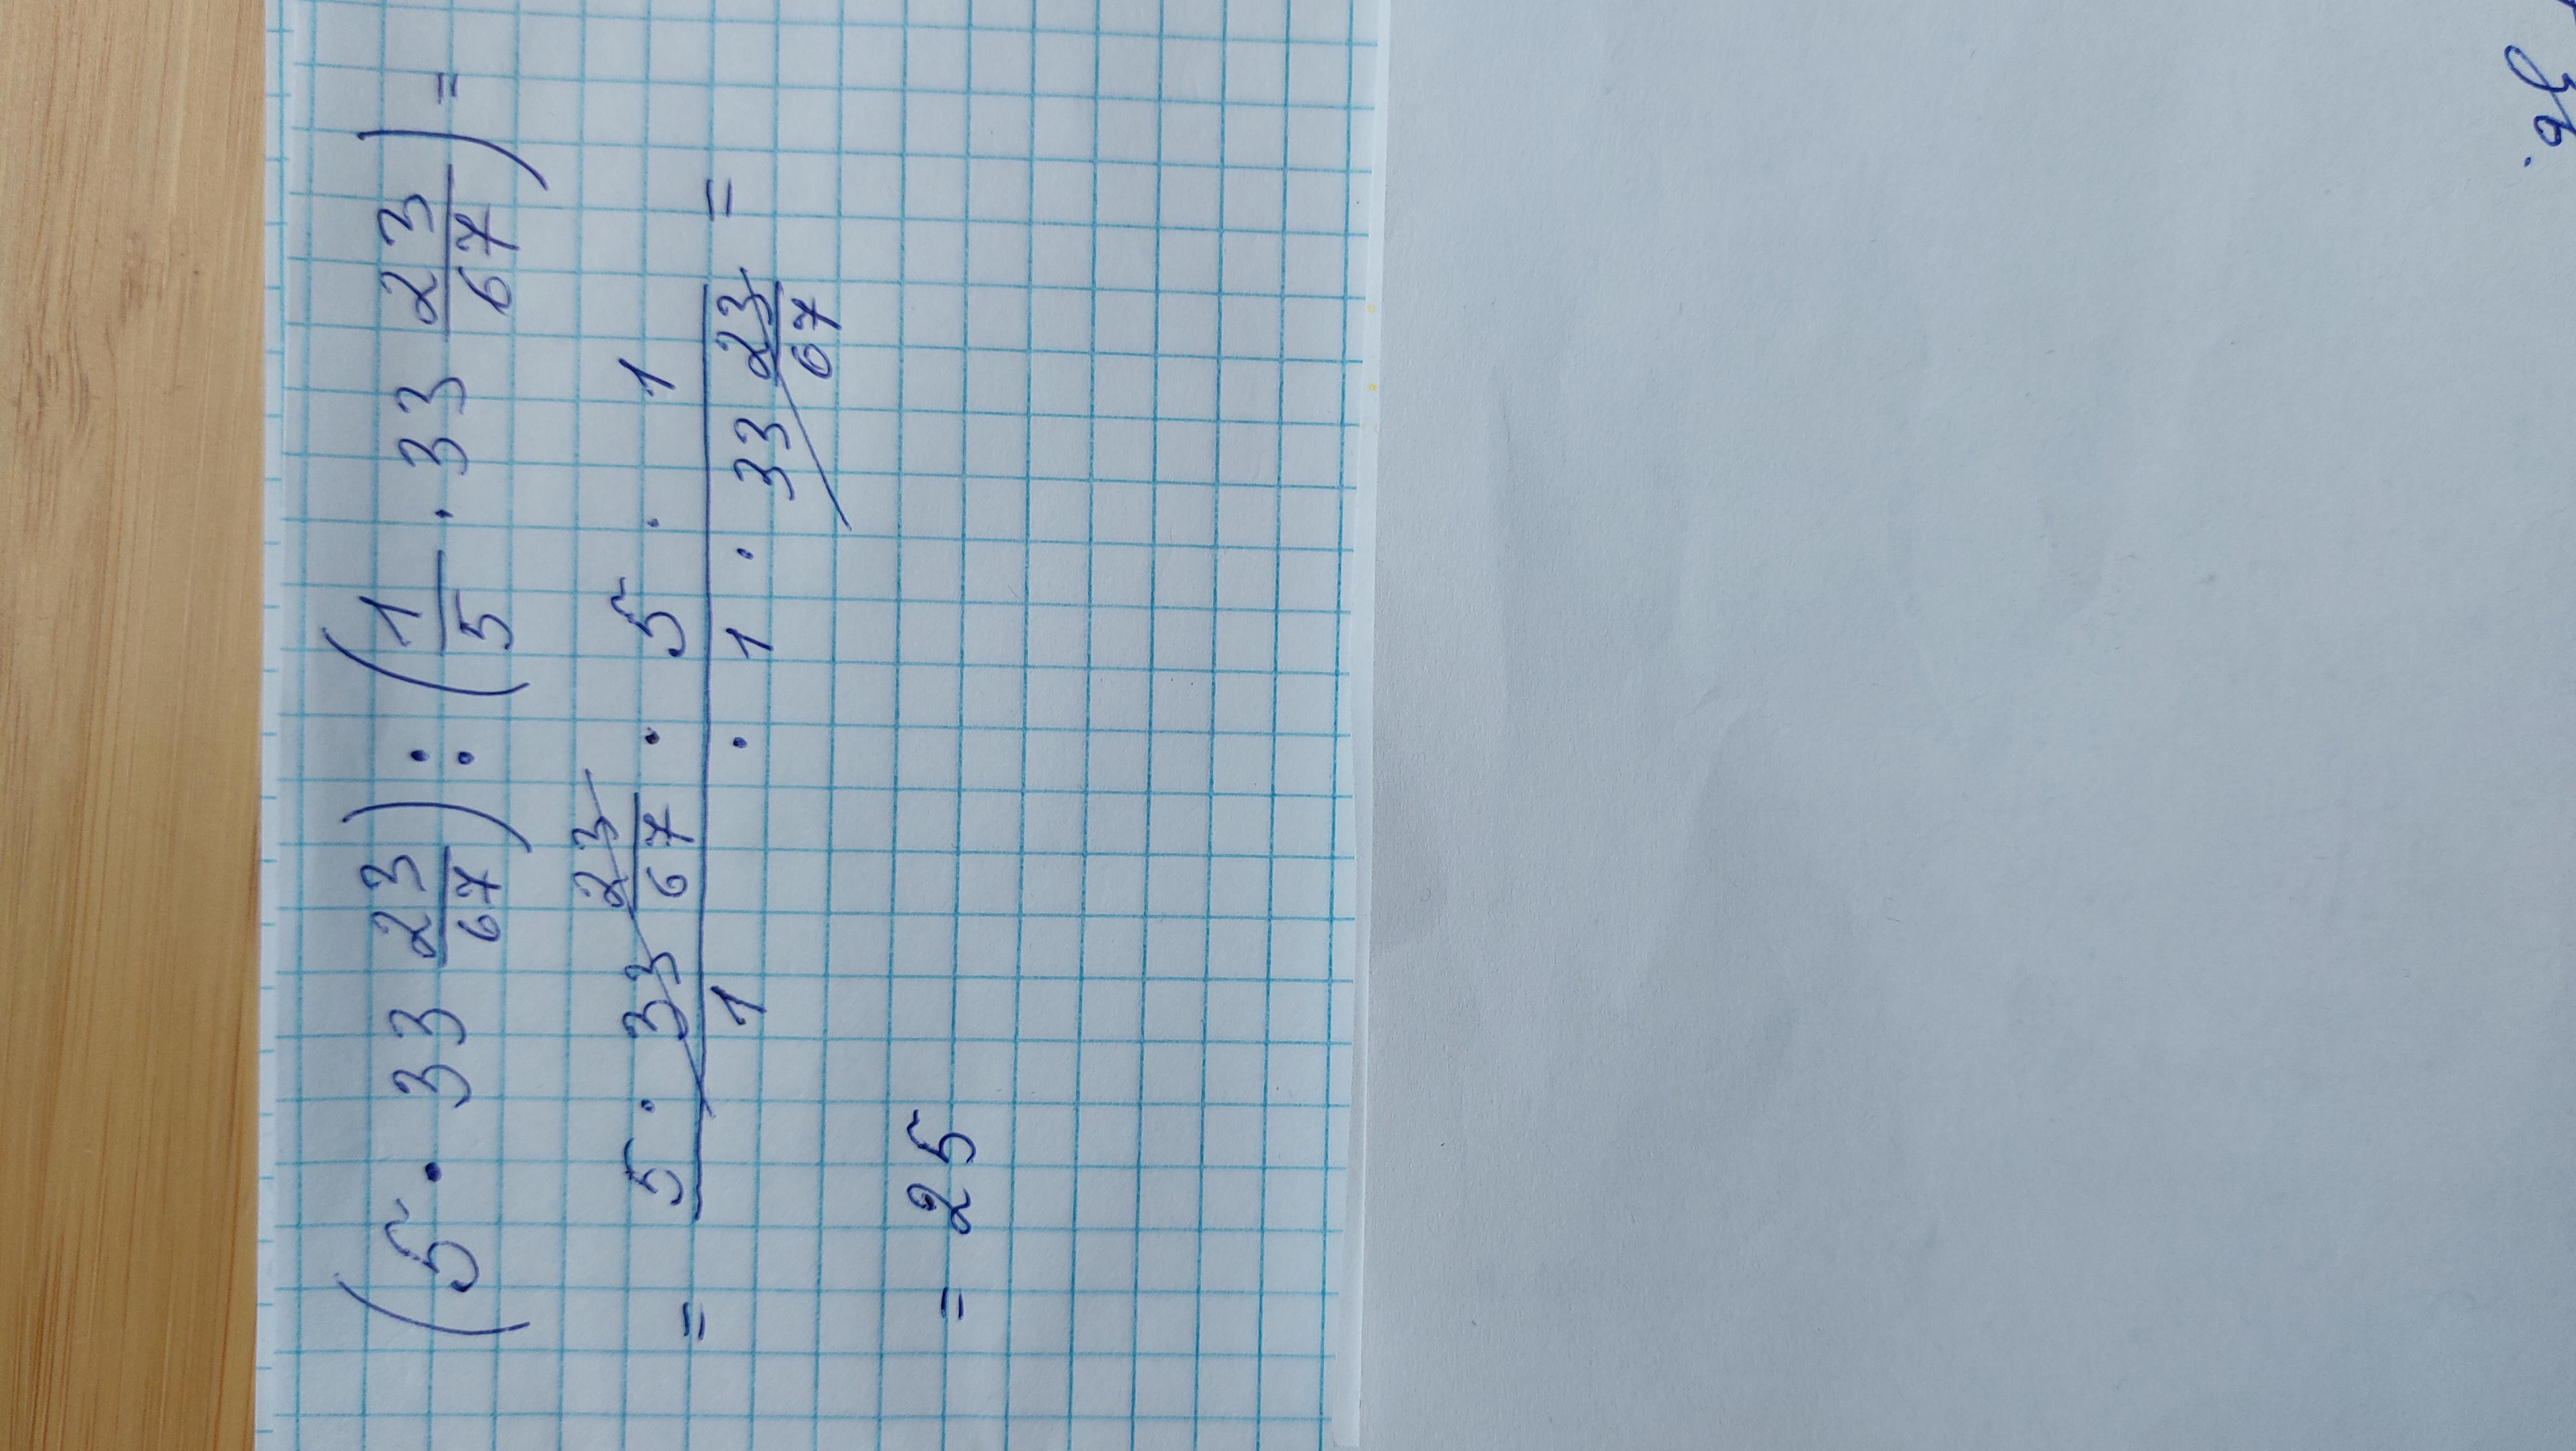 (5 · 33 23/67) : (1/5 · 33 23/67) =
= (5 · 33 23/67 · 5 · 1)/(1 · 1 · 33 23/67) =
= 25